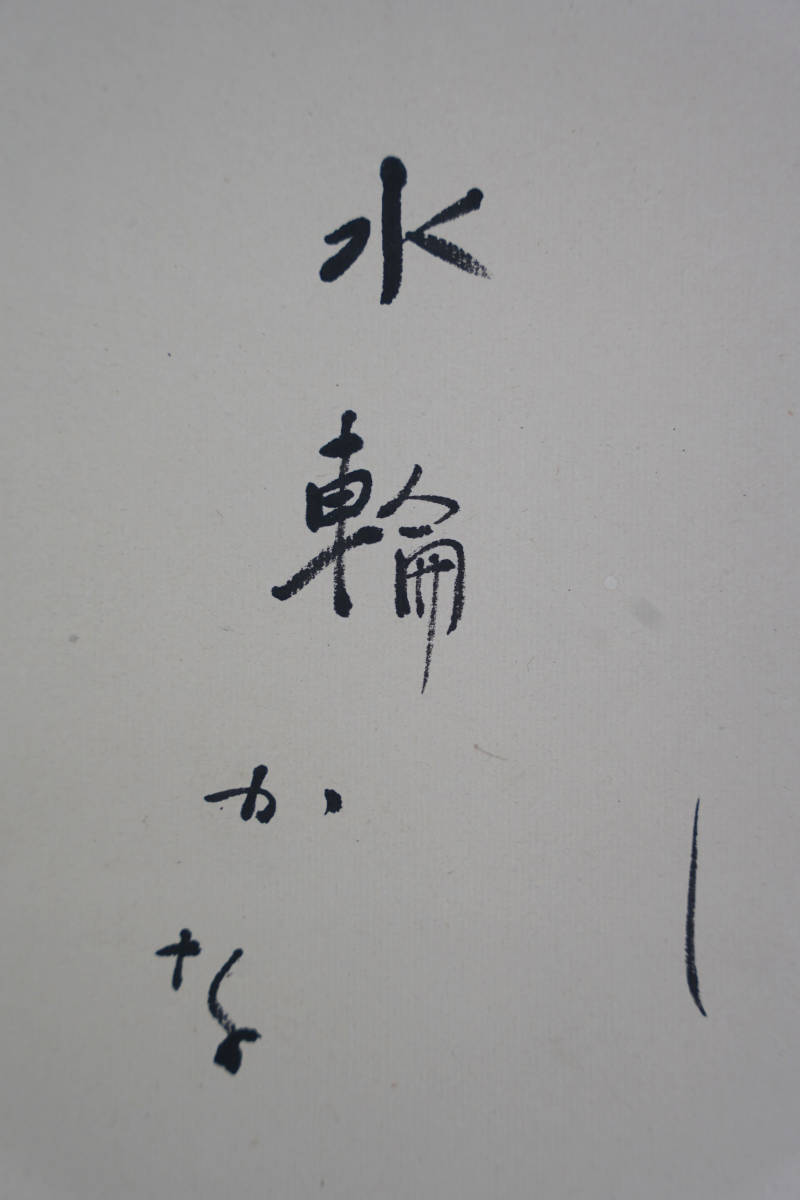 し
水輪かな